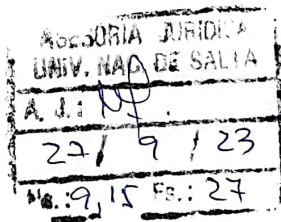 ASESORIA JURIDICA
UNIV. NAC. DE SALTA
A. J.:
27 / 9 / 23
Hs.: 9,15 Fs.: 27